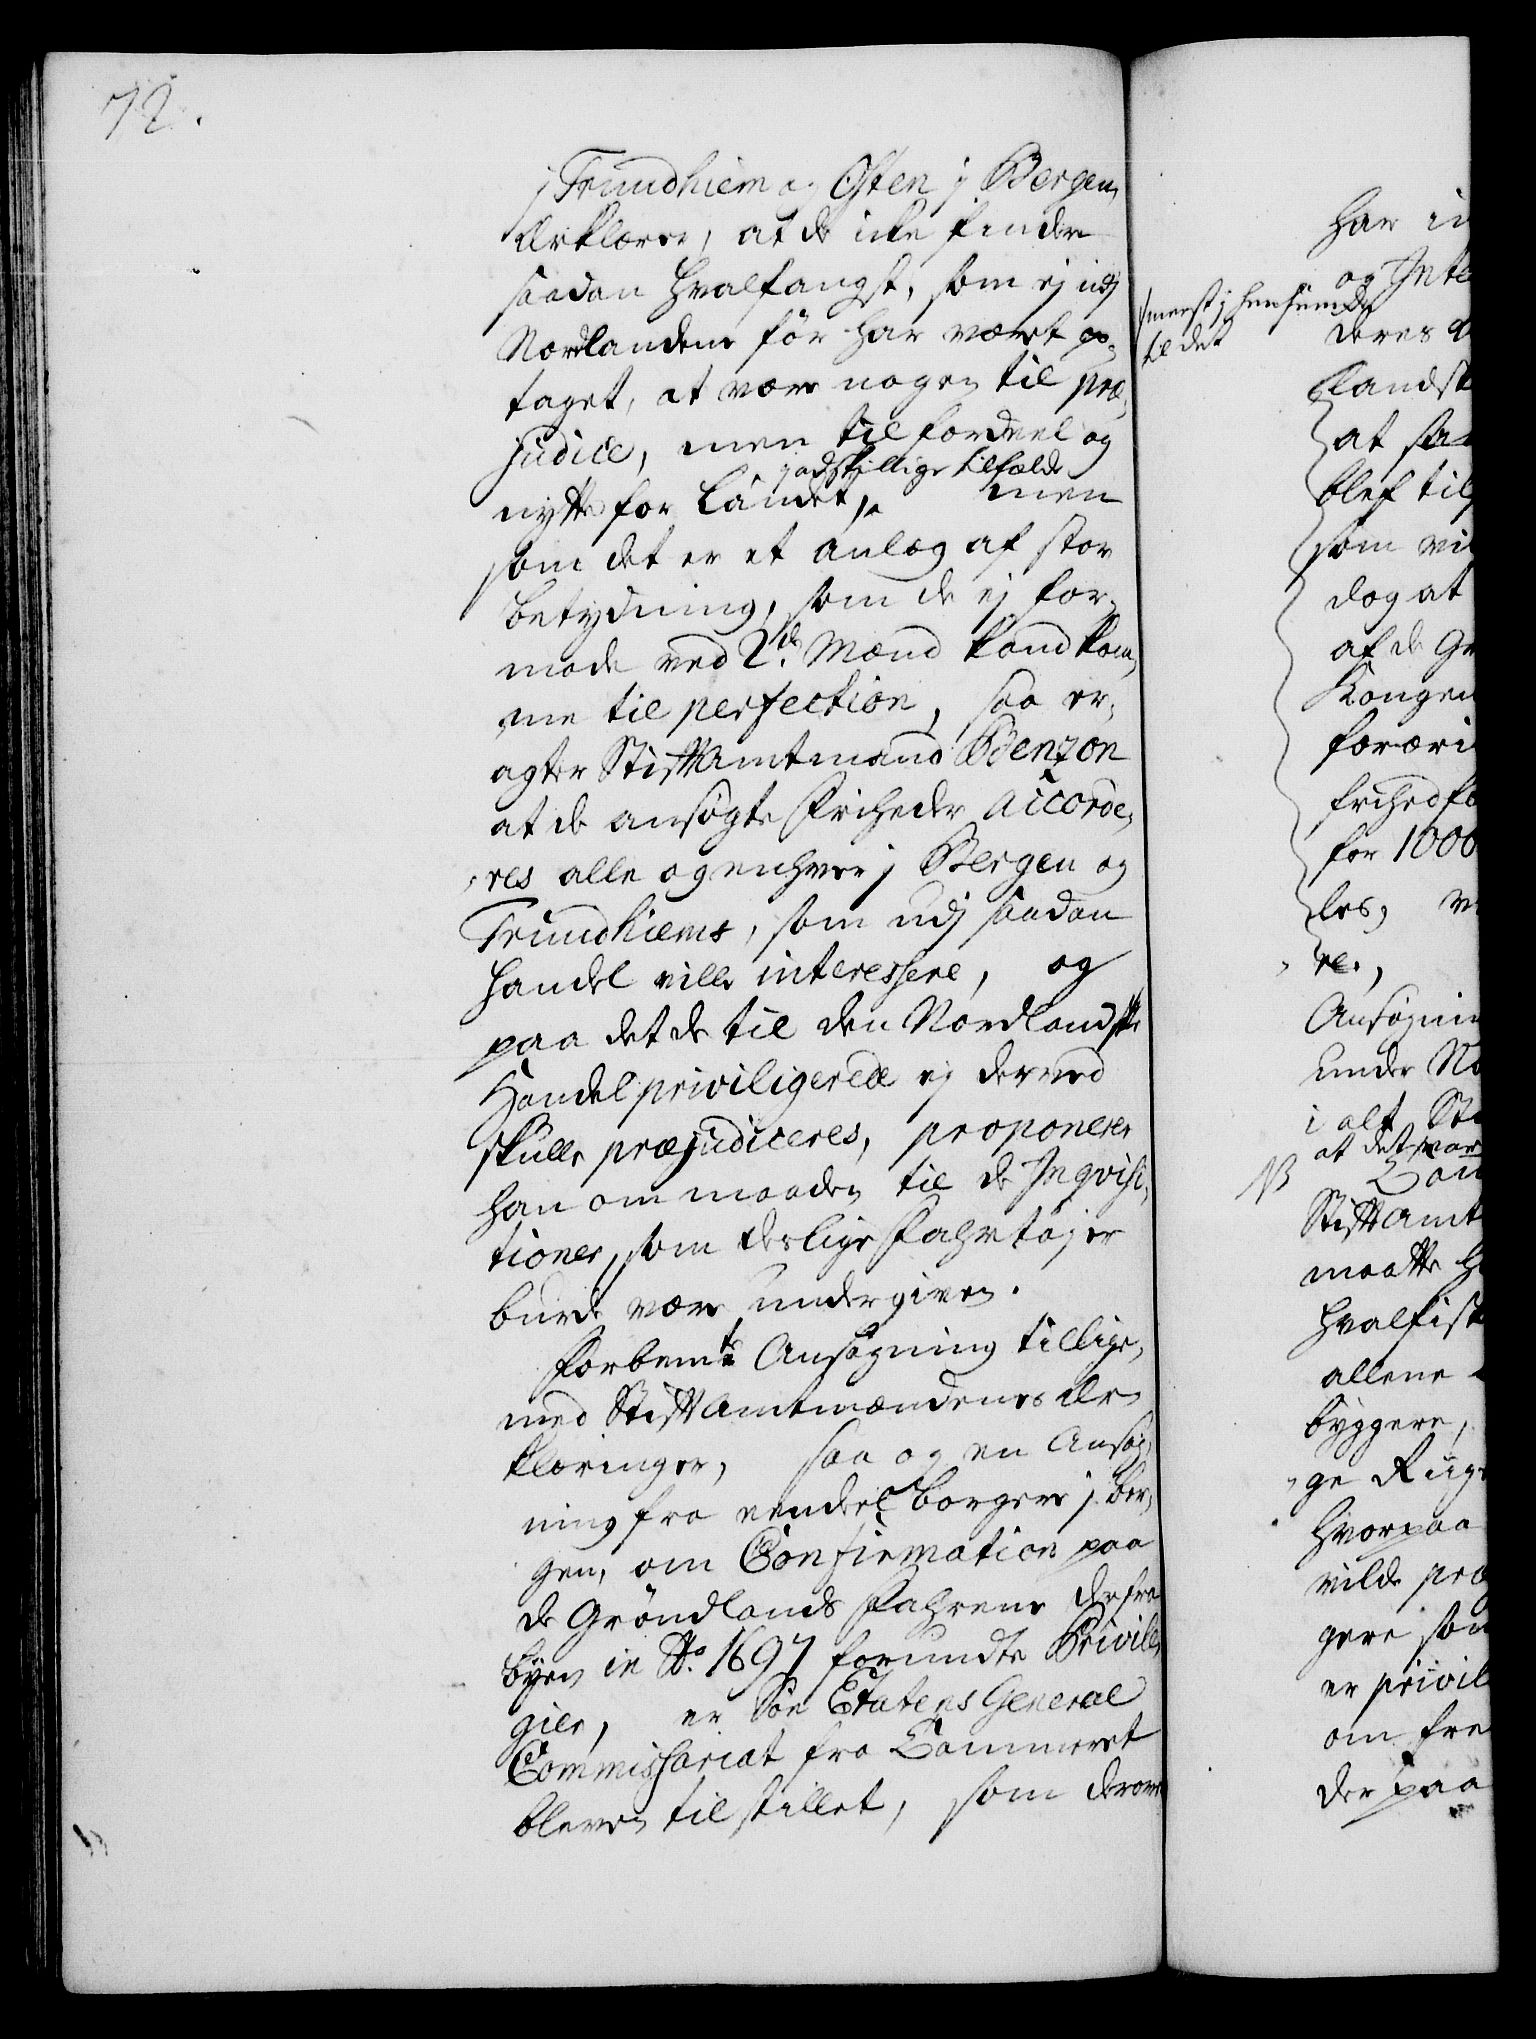 72.
j Trundhiem og Osten j Bergen
Erklærer, at de icke finder
saadan Hvalfangst, som ej udj
Nordlandene før har været op„
taget, at være nogen til præ„
judice, men til fordeel og
j adskillige tilfælde
nytte for Landet, men
som det er et anlæg af stor
betydning, som de ej for„
mode ved 2de Mænd kand kom„
me til perfection, saa er„
agter Stiftamtmand Benzon
at de ansøgte Friheder accorde„
„res alle og enhver j Bergen og
Trundhiems, som udj saadan
Handel ville interessere, og
paa det de til den Nordlandske
Handel priviligerede ej derved
skulle præjudiceres, proponerer
han om maaden til de Inqvisi„
tioner, som deslige Fahrtøjer
burde være undergiven.
Forbemte Ansøgning tillige„
med Stiftamtmændenes Er„
klæringer, saa og en Ansøg„
ning fra eendeel Borgere j Ber„
gen, om Confirmation paa
de Grøndlands Fahrene derfra
Byen in Ao. 1697 forundte Privile„
gier, er Søe Etatens General
Commissariat fra Cammeret
bleven tilstillet, som derover
har in
og Inte
j henseende
til det
deres
Landst
at saa
blef til
som vil
dog at
af de Gr
Kongen
foræri
frihed fo
for 1000
les, v
„re.,
Ansøgnin
under No
i alt St
at det var
NB
Stiftamt
maatte h
Hvalfisk
allene
byggere,
„ge Rug
Hvorpaa
vilde præ
gere som
er privil
om fre
der paa